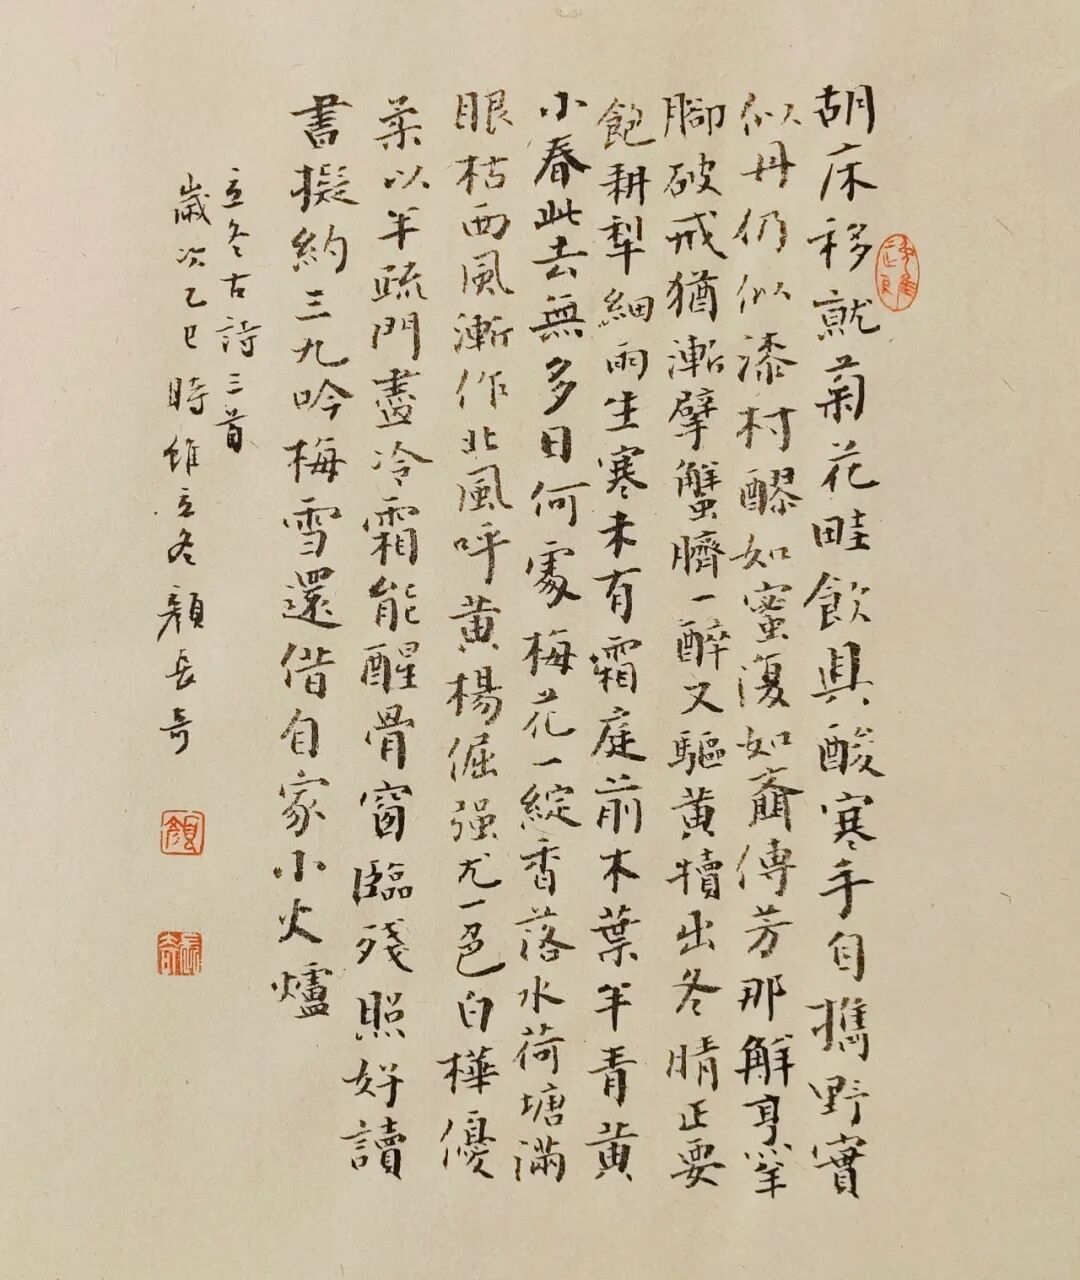 胡床移就菊花畦飲具酸寒手自攜野實
似丹仍似漆村醪如蜜復如齏傳芳那解烹羊
腳破戒猶漸擘蟹臍一醉又驅黃犢出冬晴正要
飽耕犁細雨生寒未有霜庭前木葉半青黃
小春此去無多日何處梅花一綻香落水荷塘滿
眼枯西風漸作北風呼黃楊倔强尤一色白樺優
柔以半疏門盡冷霜能醒骨窗臨殘照好讀
書擬約三九吟梅雪還借自家小火爐
立冬古詩三首
歲次乙巳時維立冬顏長奇
顏
長奇